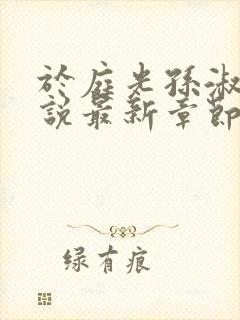 於庭光孫淑
說最新章節
绿有痕